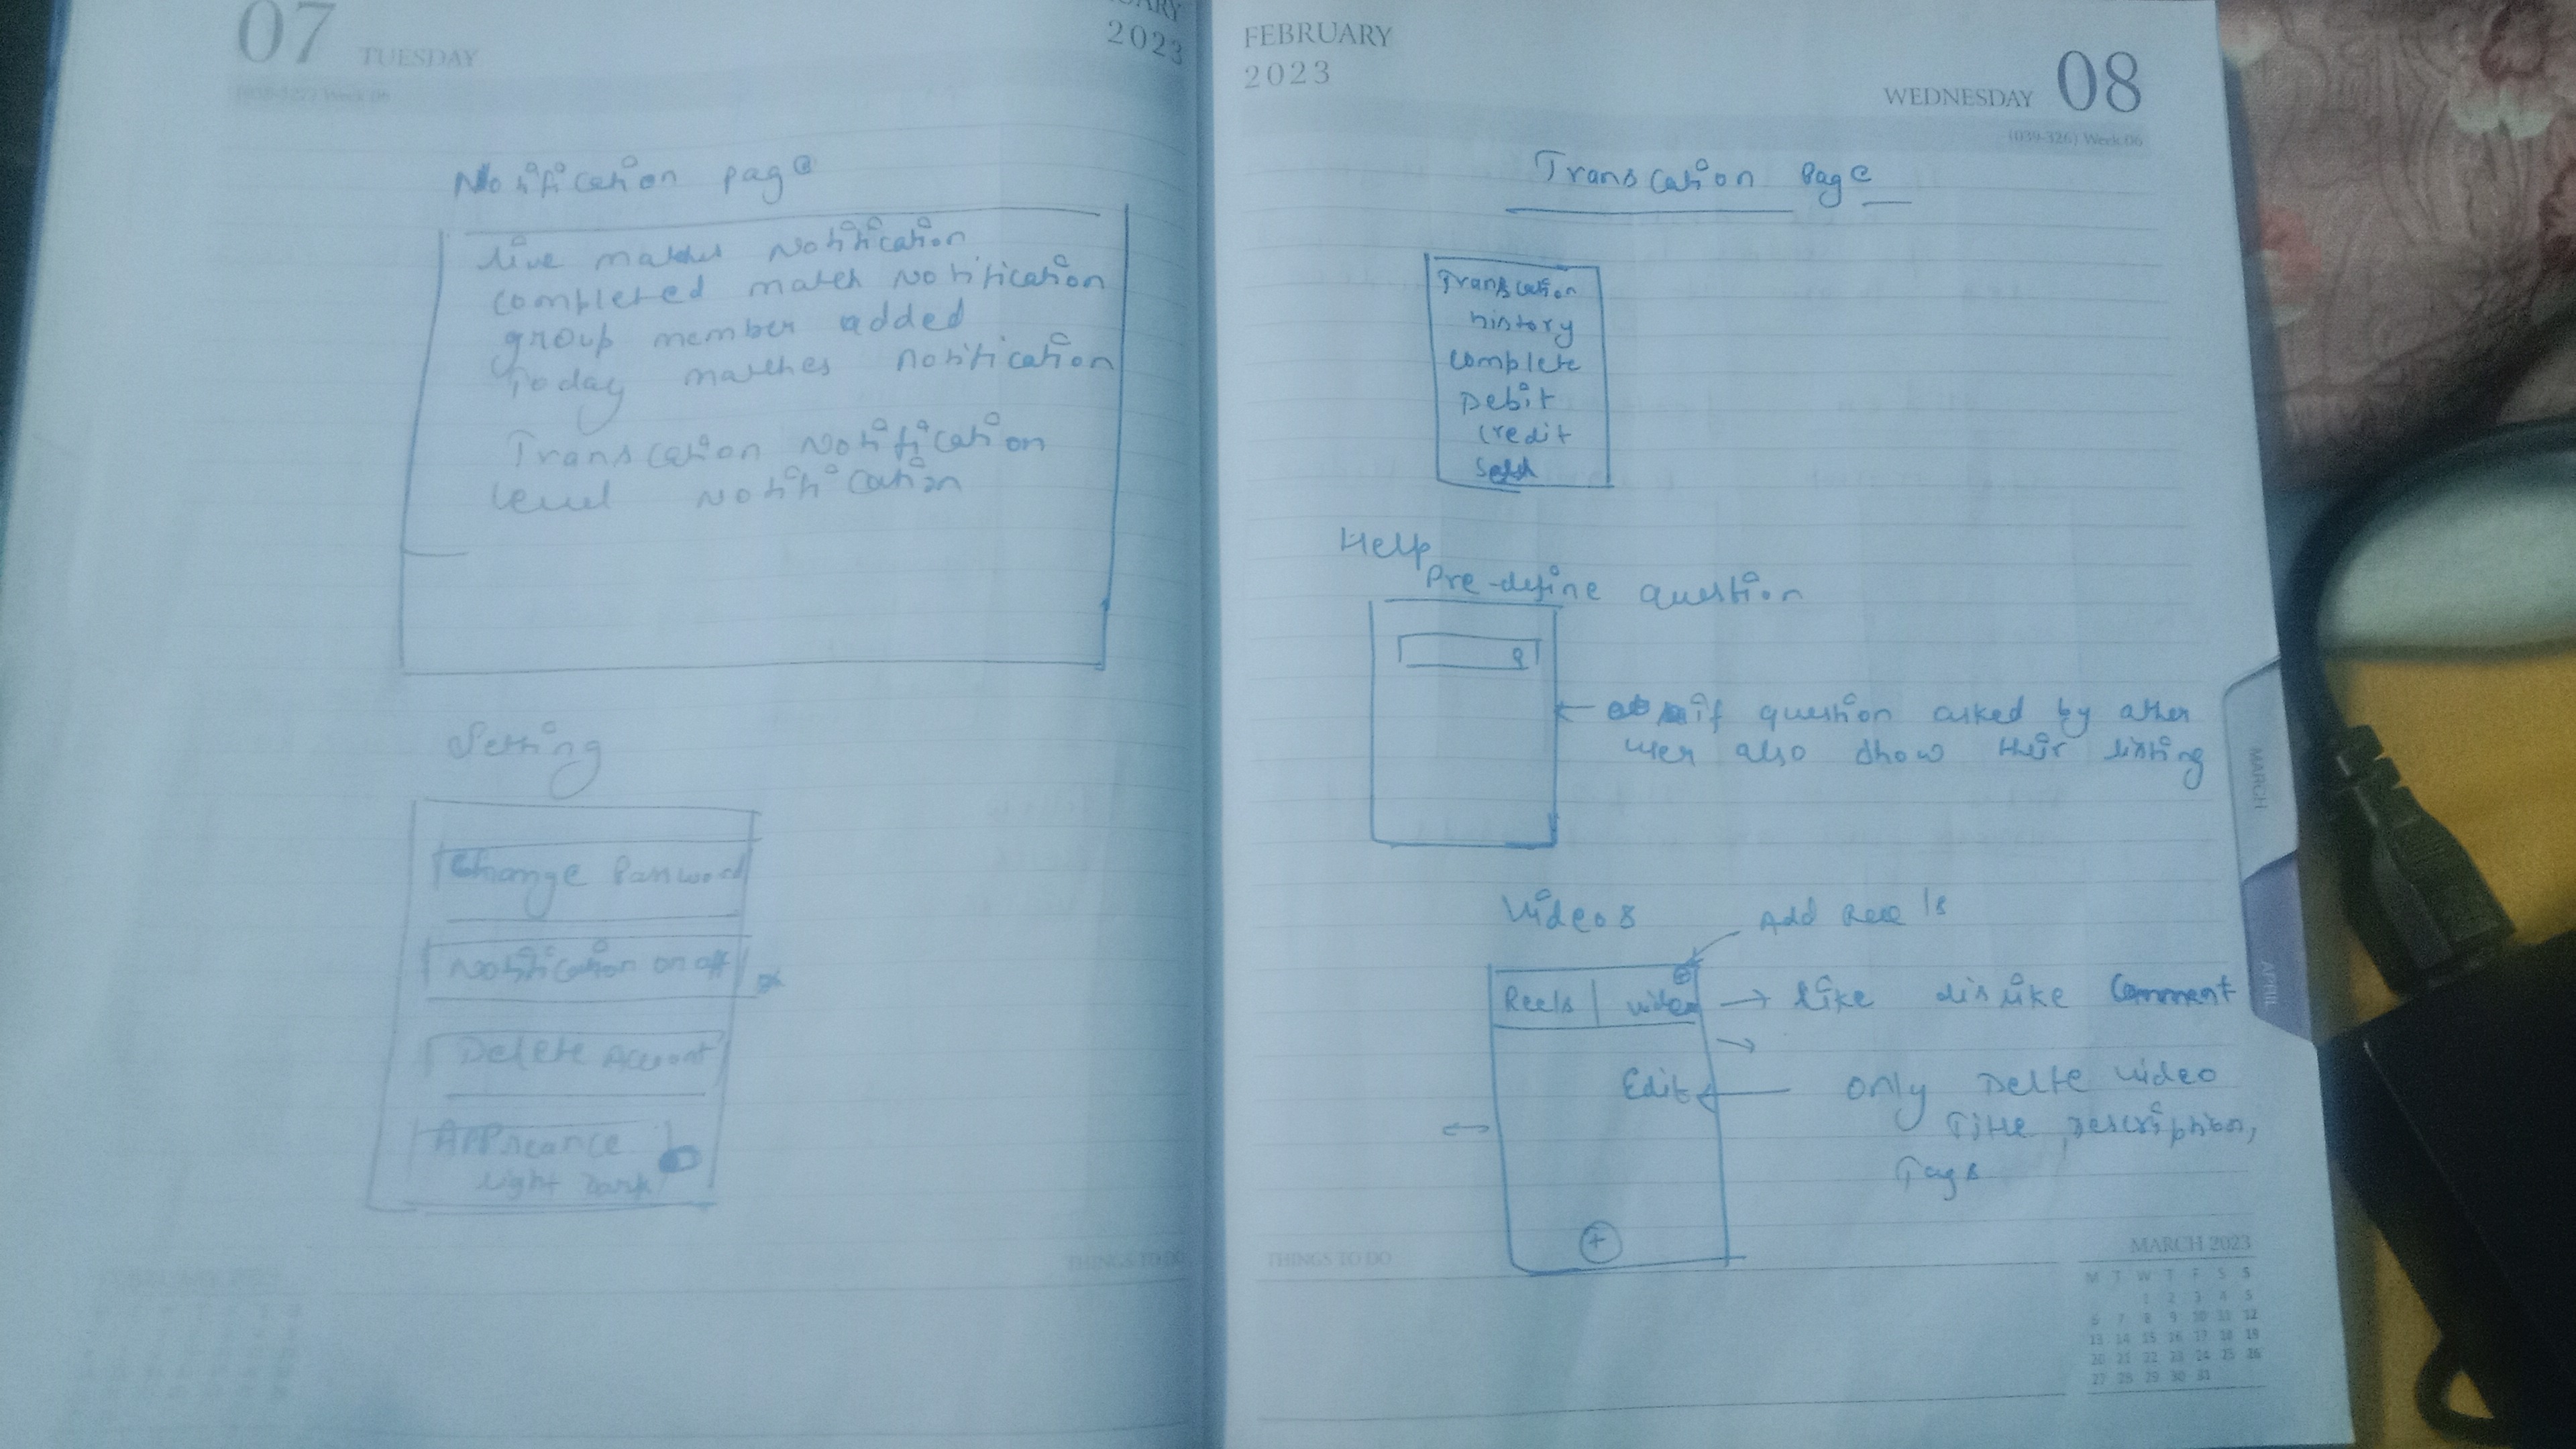 07 TUESDAY
2023
Notification page
live matches Notification
completed match Notification
group member added
Today matches notification
Transcation Notification
level Notification
Setting
Change Password
Notification on off
Delete Account
Appreance
Light Dark
THINGS TO DO
FEBRUARY
2023
WEDNESDAY 08
(039-326) Week 06
Transcation Page
Transcation
history
complete
Debit
credit
Help
Pre-define question
if question asked by other
user also show their listing
Videos
Add Reels
Reels video
like dislike Comment
Edit
only Delte video
Title, Description,
Tags
+
THINGS TO DO
MARCH 2023
M T W T F S S
1 2 3 4 5
6 7 8 9 10 11 12
13 14 15 16 17 18 19
20 21 22 23 24 25 26
27 28 29 30 31
MARCH
APRIL